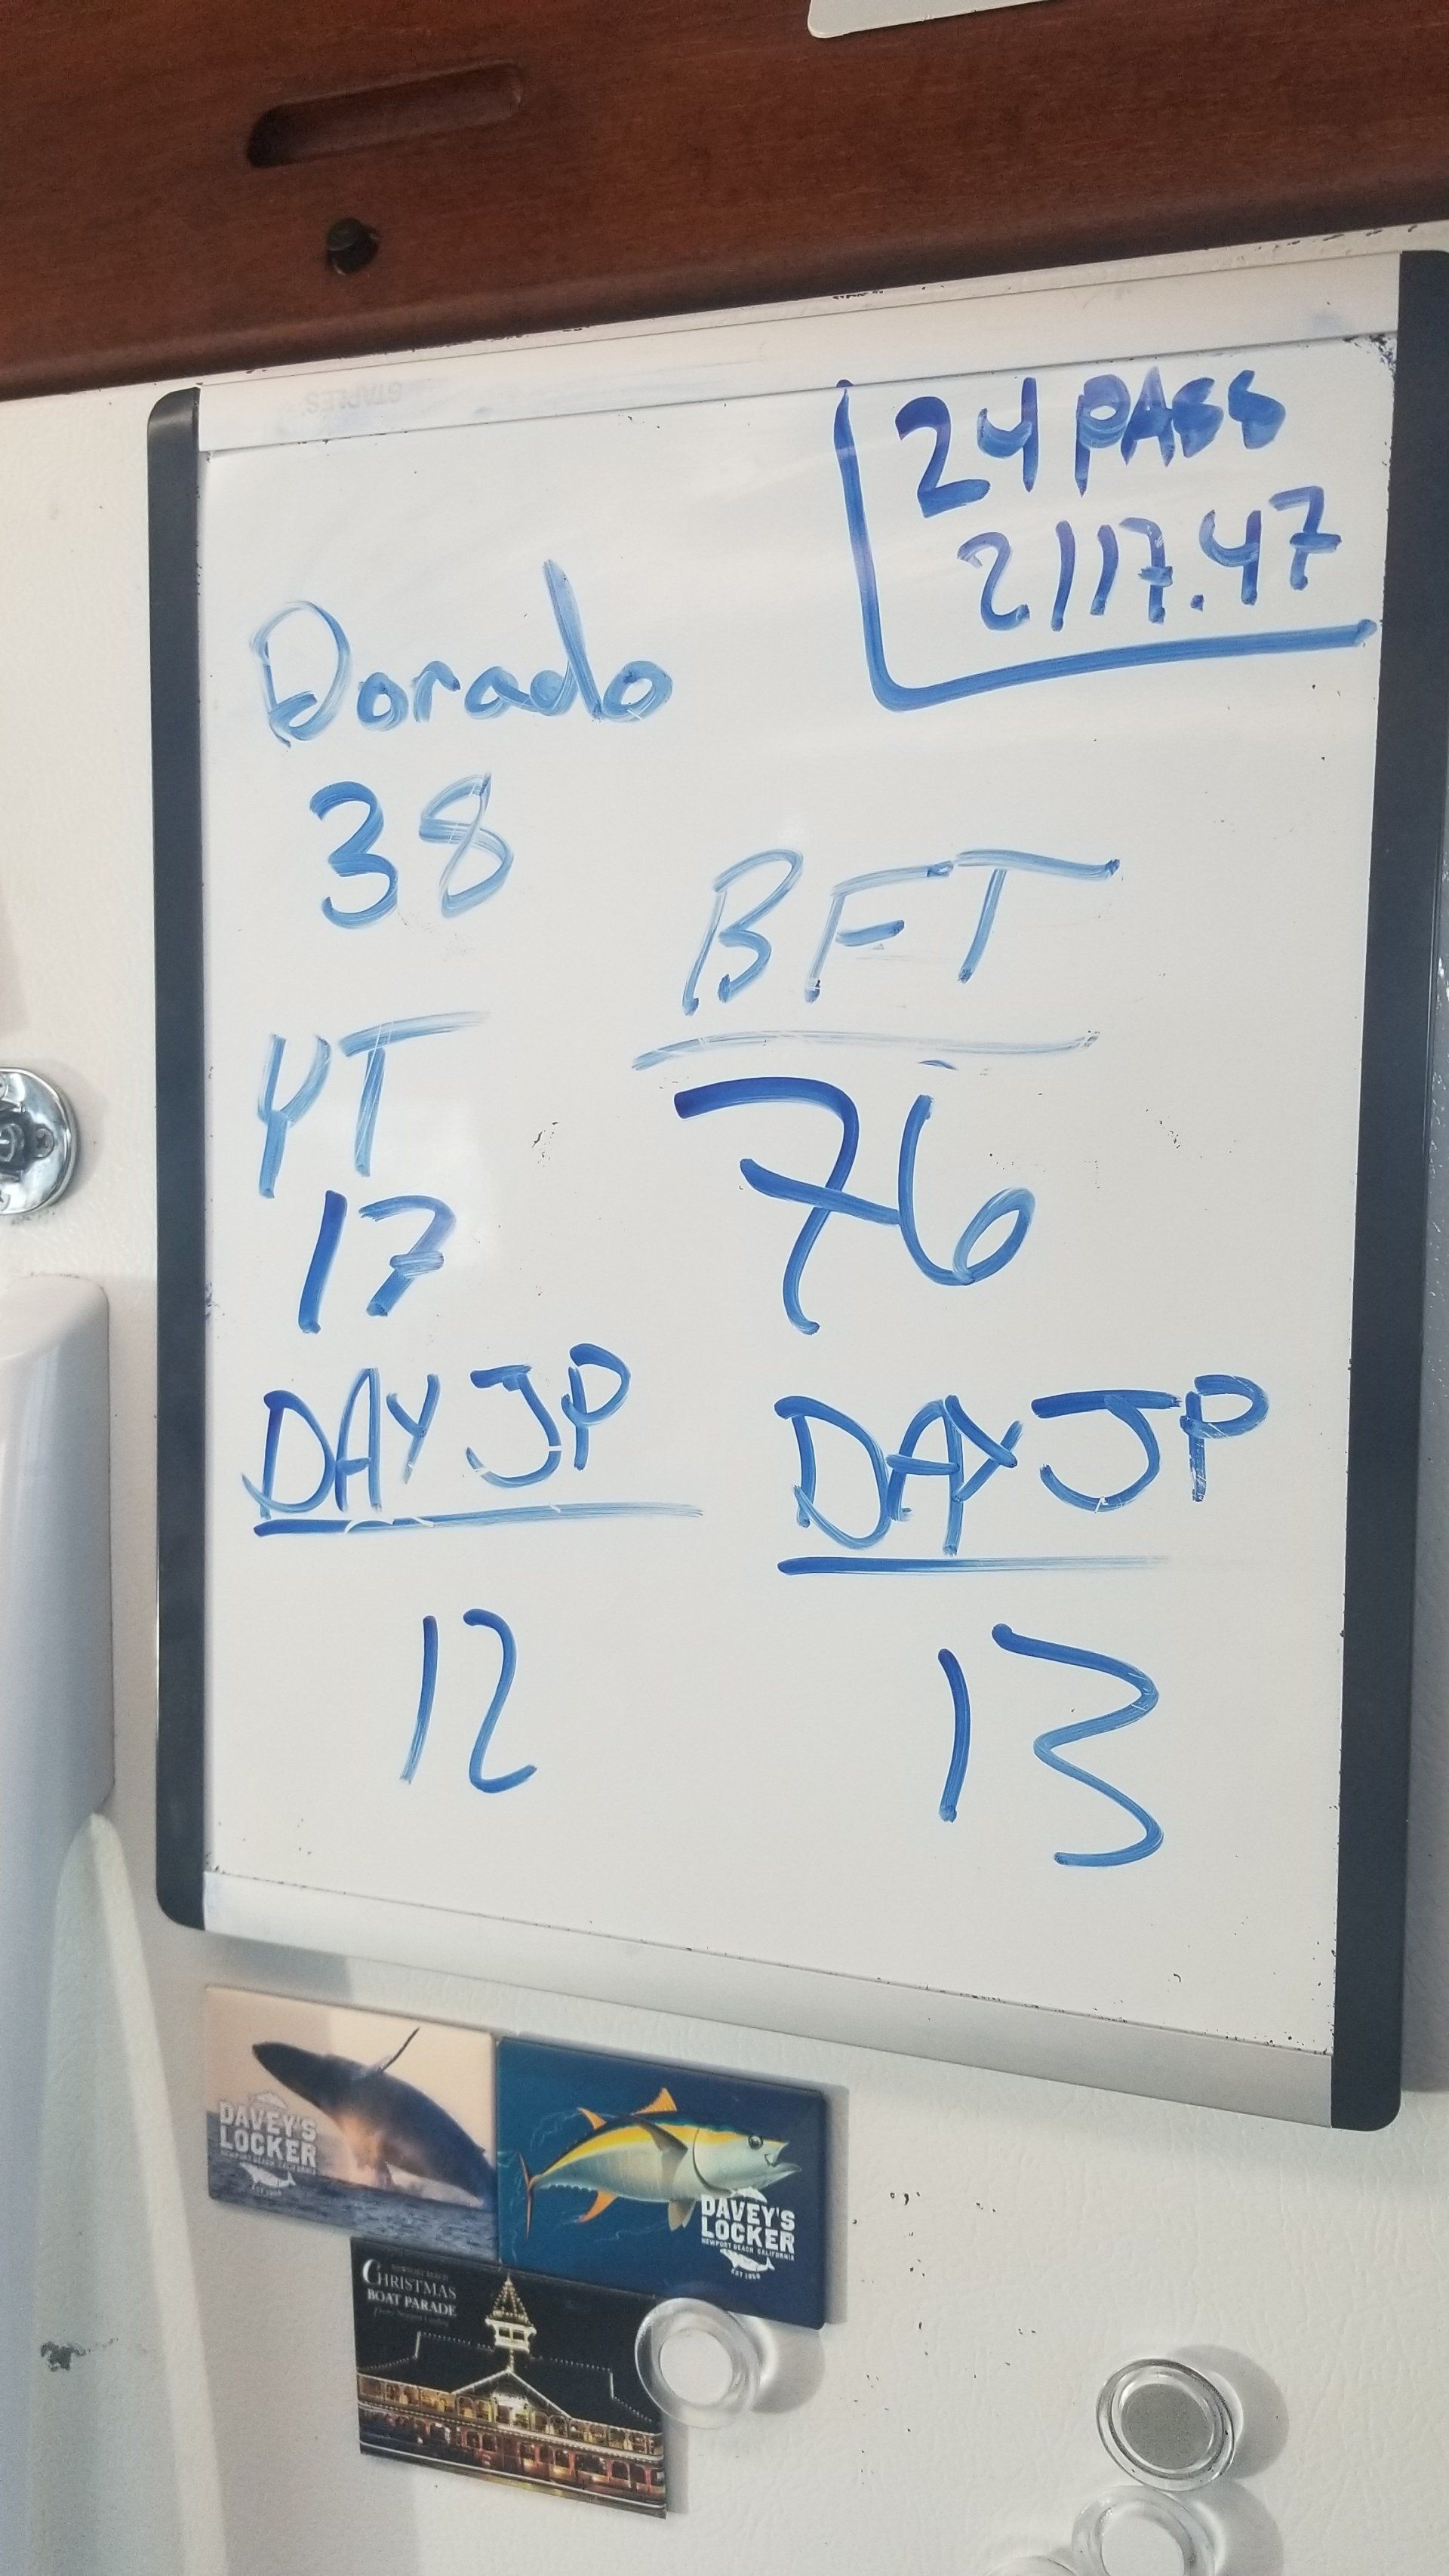 STAPLES
24 PASS
2117.47
Dorado
38
YT
17
BFT
76
DAY JP
12
DAY JP
13
DAVEY'S
LOCKER
NEWPORT BEACH CALIFORNIA
DAVEY'S
LOCKER
NEWPORT BEACH CALIFORNIA
NEWPORT BEACH
CHRISTMAS
BOAT PARADE